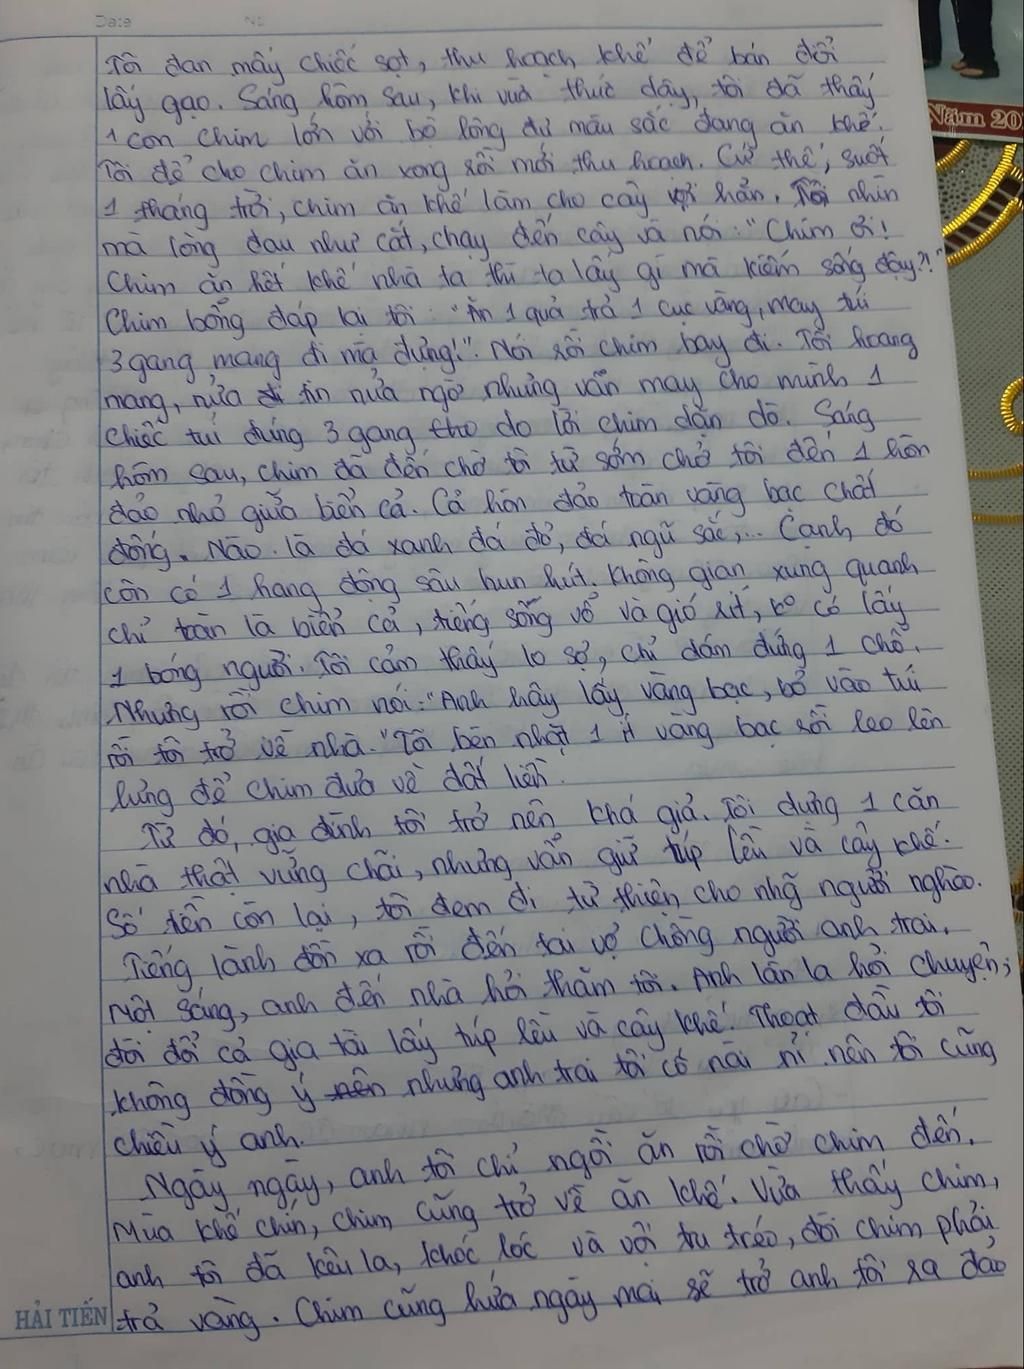 Date No
Năm 20
Tôi đan mấy chiếc sọt, thu hoạch khế để bán đổi
lấy gạo. Sáng hôm sau, khi vừa thức dậy, tôi đã thấy
1 con chim lớn với bộ lông đủ màu sắc đang ăn khế.
Tôi để cho chim ăn xong rồi mới thu hoạch. Cứ thế, suốt
1 tháng trời, chim ăn khế làm cho cây vợi hẳn. Tôi nhìn
mà lòng đau như cắt, chạy đến cây và nói: "Chim ơi!
Chim ăn hết khế nhà ta thì ta lấy gì mà kiếm sống đây?!"
Chim bỗng đáp lại tôi: "Ăn 1 quả trả 1 cục vàng, may túi
3 gang mang đi mà đựng!". Nói rồi chim bay đi. Tôi hoang
mang, nửa đi tin nửa ngờ nhưng vẫn may cho mình 1
chiếc túi đúng 3 gang theo do lời chim dặn dò. Sáng
hôm sau, chim đã đến chờ tôi từ sớm chở tôi đến 1 hòn
đảo nhỏ giữa biển cả. Cả hòn đảo toàn vàng bạc chất
đống. Nào là đá xanh đá đỏ, đá ngũ sắc,... Cạnh đó
còn có 1 hang động sâu hun hút. Không gian xung quanh
chỉ toàn là biển cả, tiếng sóng vỗ và gió rít, ko có lấy
1 bóng người. Tôi cảm thấy lo sợ, chỉ dám đứng 1 chỗ.
Nhưng rồi chim nói: "Anh hãy lấy vàng bạc, bỏ vào túi
rồi tôi trở về nhà." Tôi bèn nhặt 1 ít vàng bạc rồi leo lên
lưng để chim đưa về đất liền.
Từ đó, gia đình tôi trở nên khá giả. Tôi dựng 1 căn
nhà thật vững chãi, nhưng vẫn giữ túp lều và cây khế.
Số tiền còn lại, tôi đem đi từ thiện cho nhg người nghèo.
Tiếng lành đồn xa rồi đến tai vợ chồng người anh trai.
Một sáng, anh đến nhà hỏi thăm tôi. Anh lân la hỏi chuyện,
đòi đổi cả gia tài lấy túp lều và cây khế. Thoạt đầu tôi
không đồng ý nên nhưng anh trai tôi cố nài nỉ nên tôi cũng
chiều ý anh.
Ngày ngày, anh tôi chỉ ngồi ăn rồi chờ chim đến.
Mùa khế chín, chim cũng trở về ăn khế. Vừa thấy chim,
anh tôi đã kêu la, khóc lóc và vội tru tréo, đòi chim phải
HẢI TIẾN trả vàng. Chim cũng hứa ngày mai sẽ trở anh tôi ra đảo